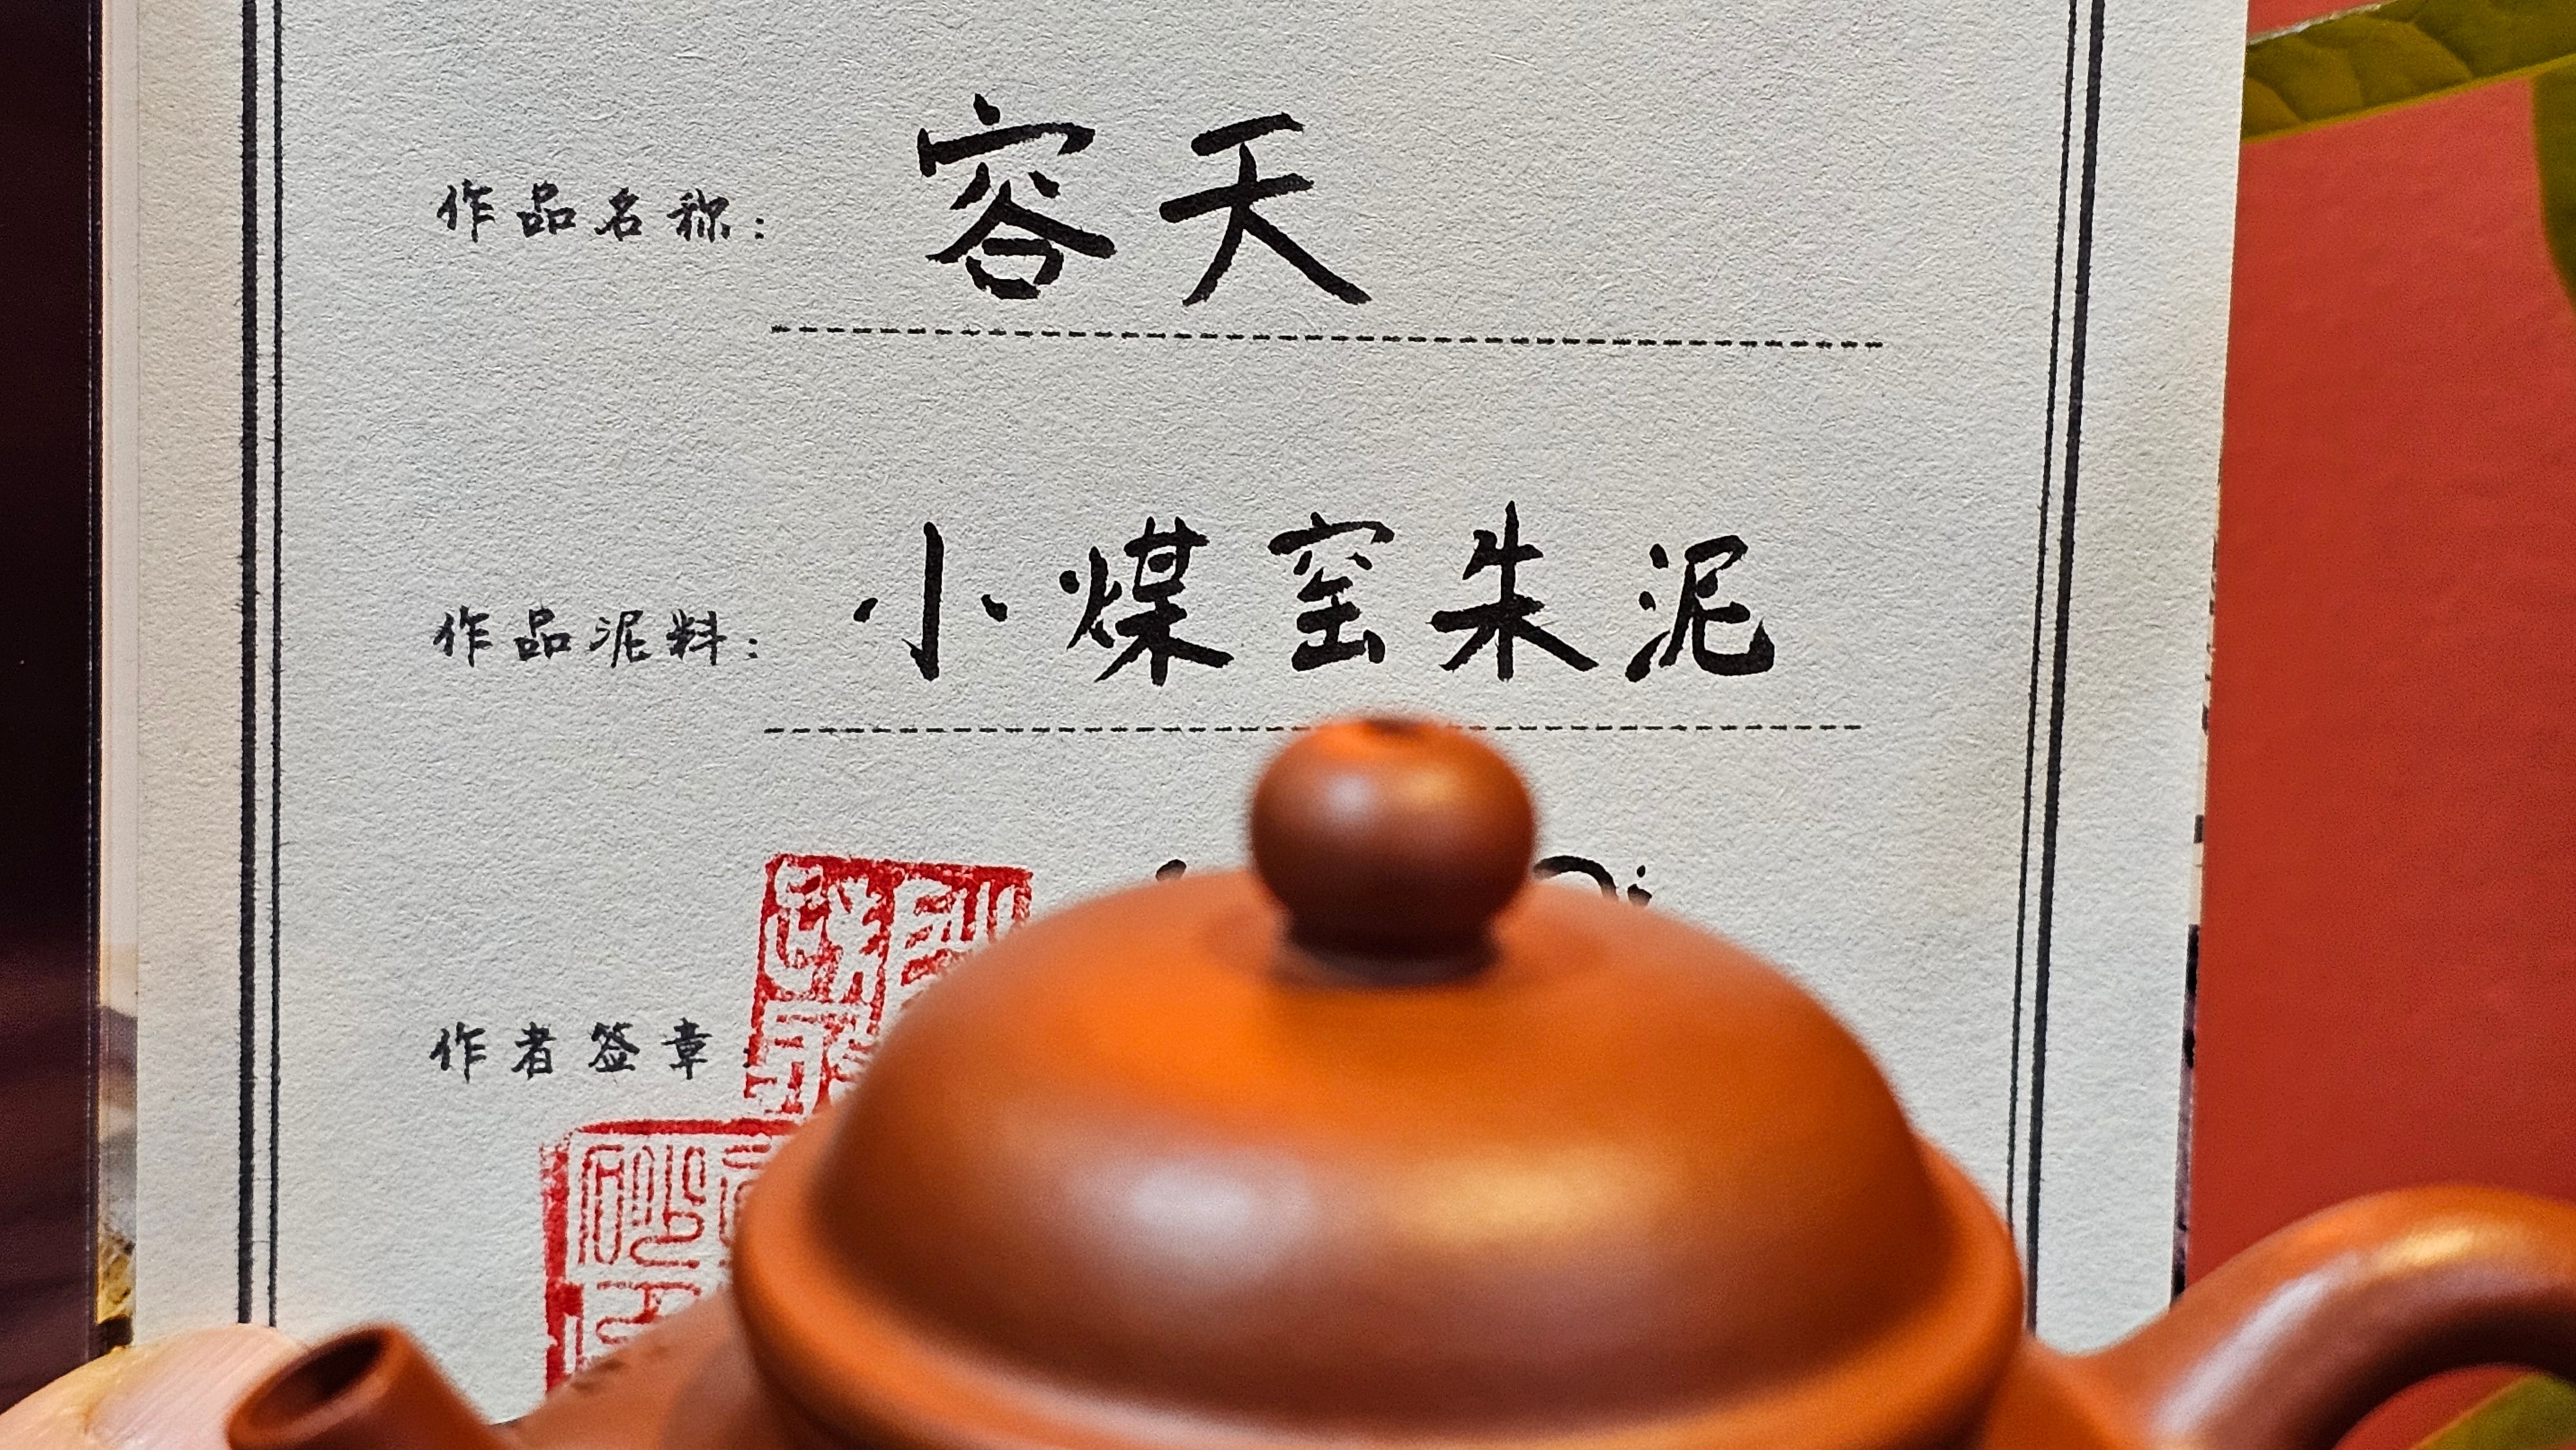 作品名称： 容天
作品泥料： 小煤窑朱泥
作者签章